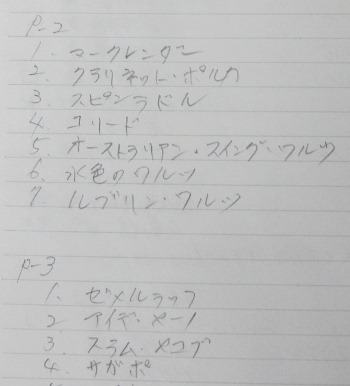 P-2
1. マークレンダー
2. クラリネット・ポルカ
3. スピンラドル
4. コリード
5. オーストラリアン・スイング・ワルツ
6. 水色のワルツ
7. ルブリン・ワルツ
P-3
1. ゼメルラップ
2. アイデ・ヤーノ
3. スラム・ヤコブ
4. サガポ